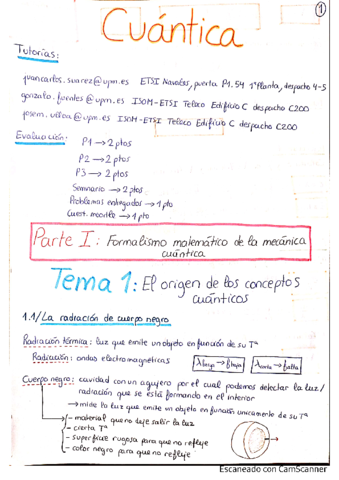 1
Cuántica
Tutorías:
juancarlos.suarez@upm.es ETSI Navales, puerta P1.54 1ª Planta, despacho 4-5
gonzalo.fuentes@upm.es ISOM-ETSI Teleco Edificio C despacho C200
@upm.es ISOM-ETSI Teleco Edificio C despacho C200
Evaluación:
P1 → 2 ptos
P2 → 2 ptos
P3 → 2 ptos
Seminario → 2 ptos
Problemas entregados → 1 pto
Cuest. moodle → 1 pto
Parte I: Formalismo matemático de la mecánica
cuántica
Tema 1: El origen de los conceptos
cuánticos
1.1/La radiación de cuerpo negro
Radiación térmica: luz que emite un objeto en función de su Tª
Radiación: ondas electromagnéticas λlarga → fbaja λcorta → falta
Cuerpo negro: cavidad con un agujero por el cual podemos detectar la luz/
radiación que se está formando en el interior
→ mide la luz que emite un objeto en función unicamente de su Tª
- material que no deje salir la luz
- cierta Tª
- superficie rugosa para que no refleje
- color negro para que no refleje
Escaneado con CamScanner